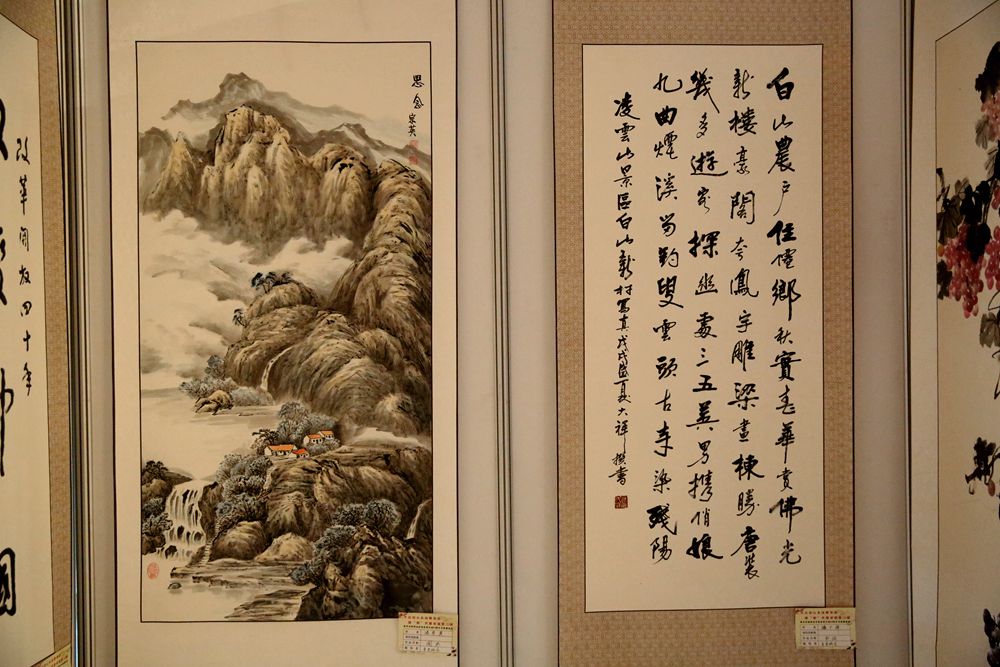 改革開放四十年
國
思念 宗英
白山農戶住僊鄉秋實春華賞佛光
新樓豪閣夸鳳宇雕梁畫棟勝唐裝
幾多遊客探幽處三五美男攜俏娘
九曲煙溪留釣叟雲頭古寺染殘陽
凌雲山景區白山新村寫真戊戌盛夏大祥撰書